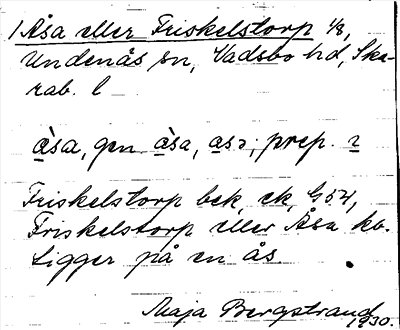 1 Åsa eller Friskelstorp 1/8,
Undenås sn, Vadsbo hd, Ska-
rab. l
àsa, gen àsa, asɔ; prep. ɿ
Friskelstorp bek, ek, G54,
Friskelstorp eller Åsa kb.
Ligger på en ås
Maja Bergstrand
1930.